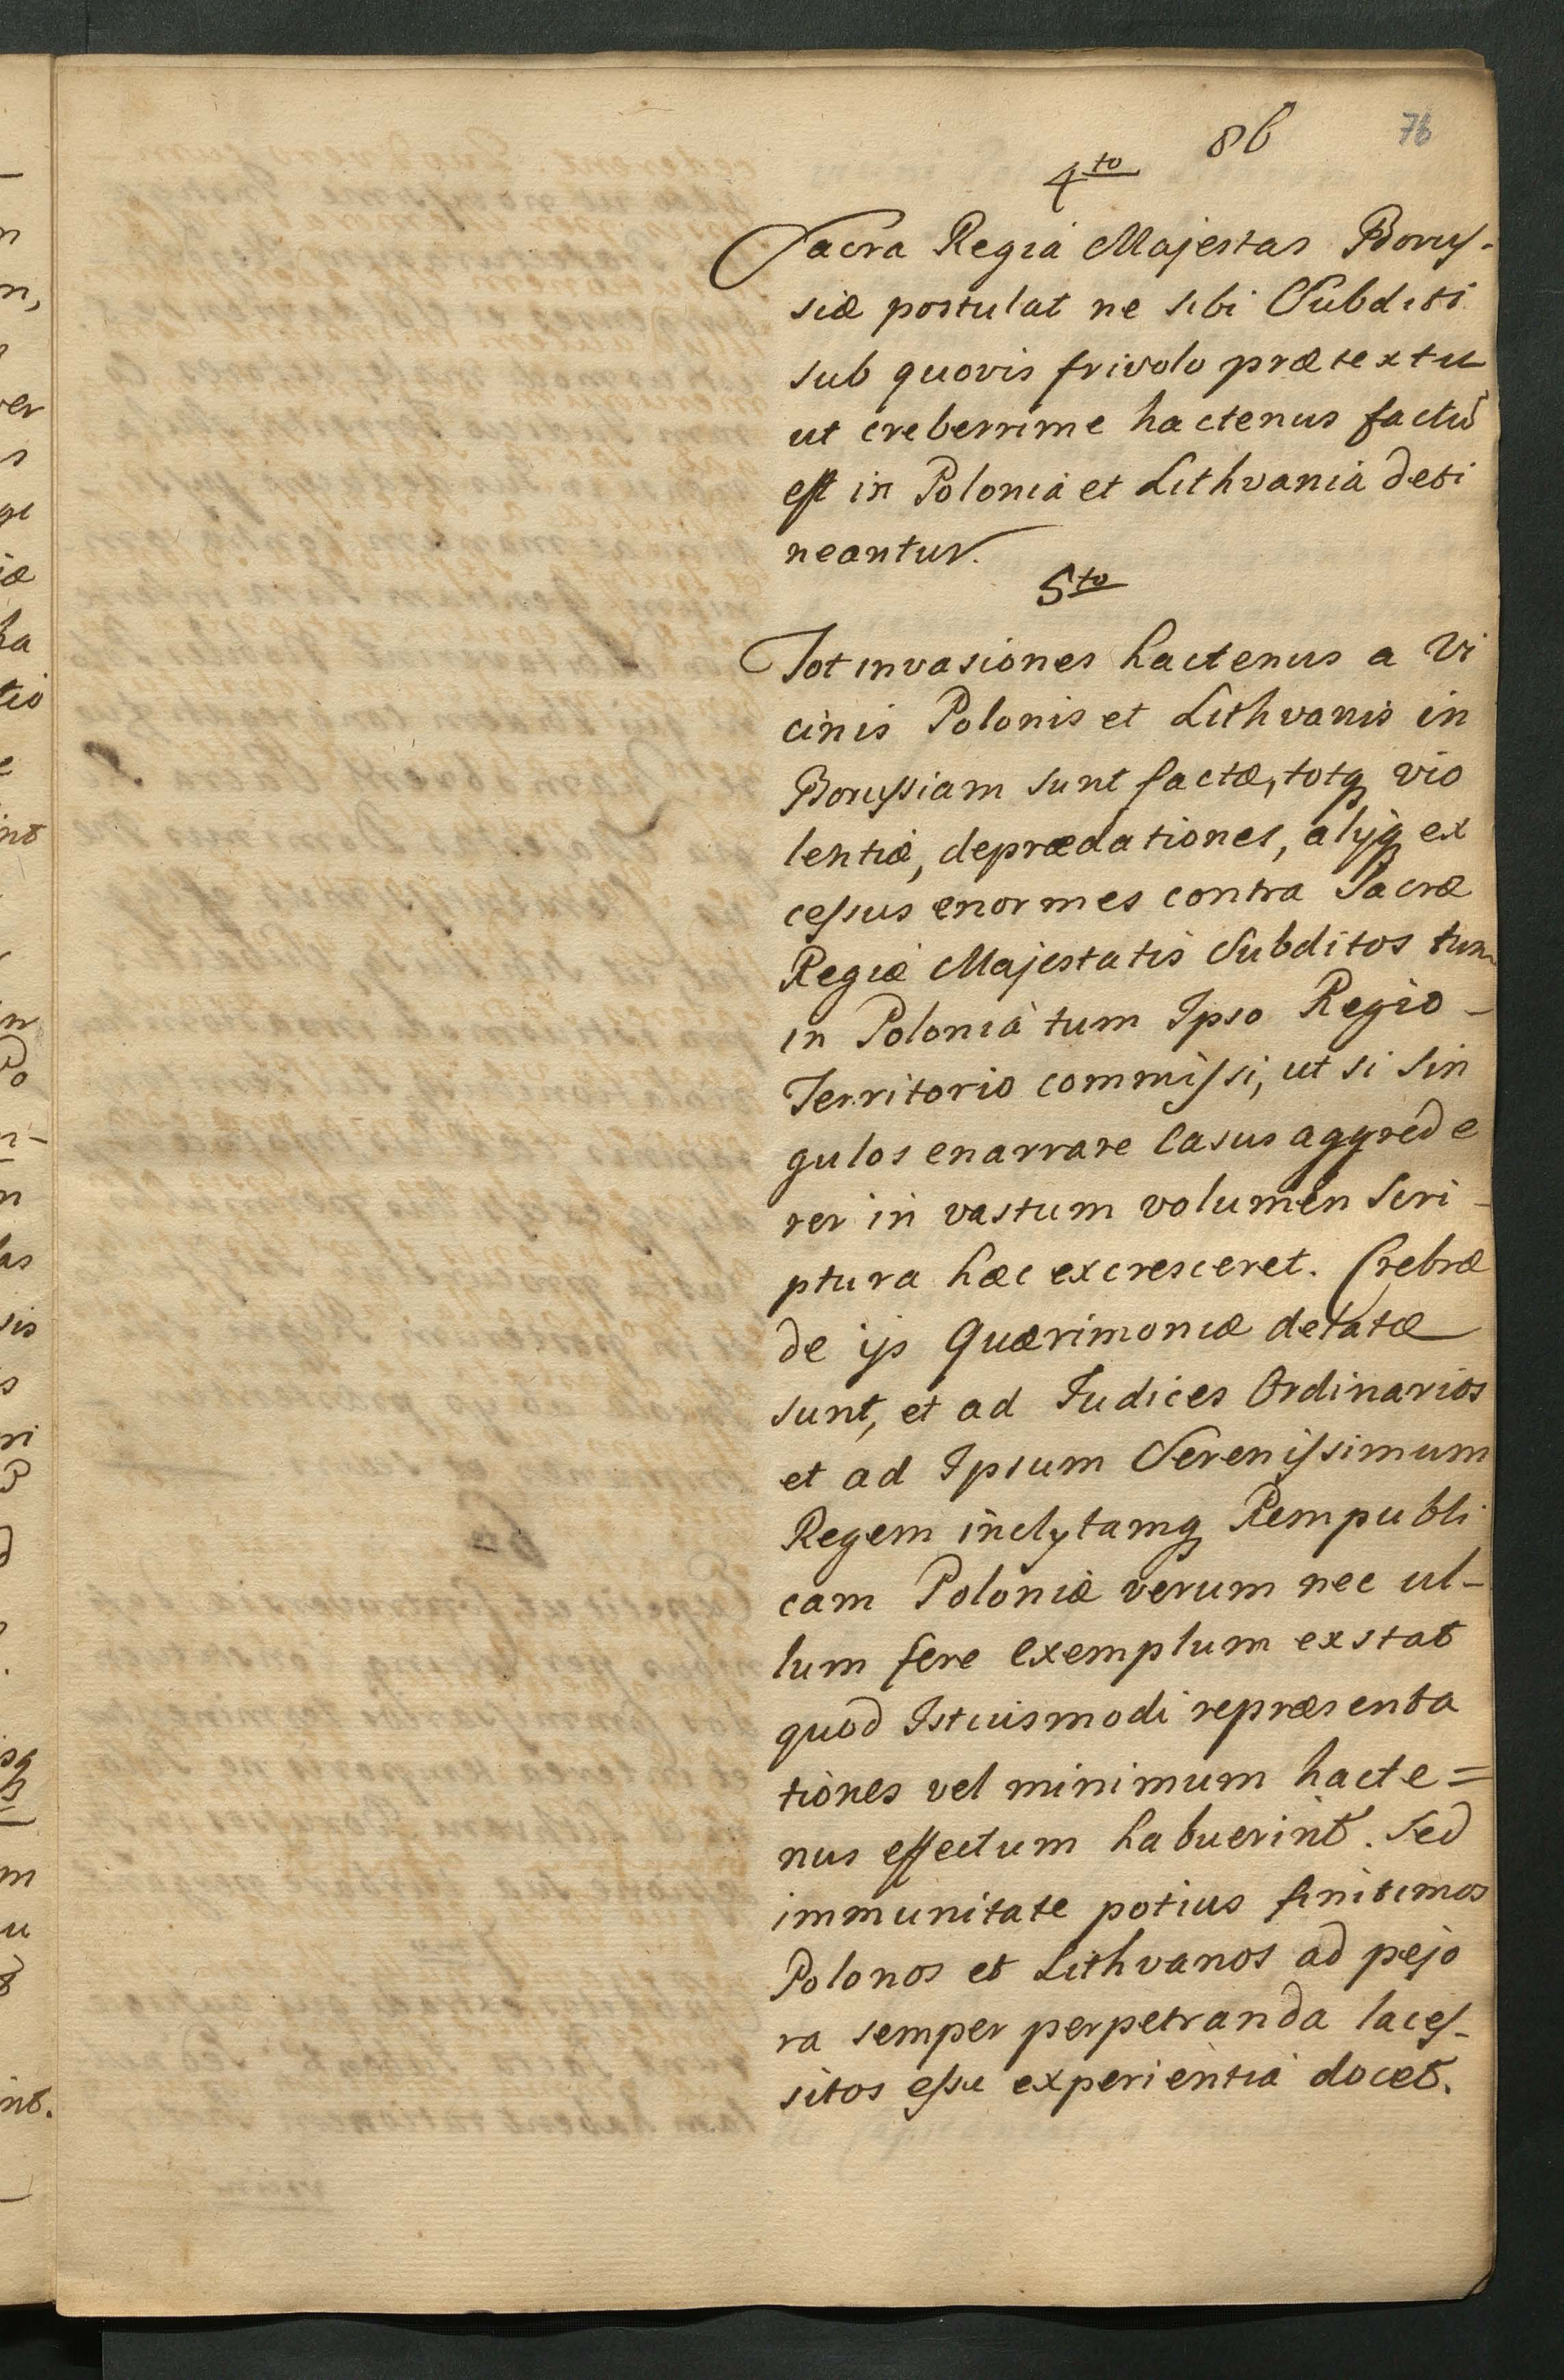 86 76
4to
Sacra Regia Majestas Borus-
siæ postulat ne sibi Subditi
sub quovis frivolo prætextu
ut creberrime hactenus factū
est in Poloniâ et Lithvaniâ deti
neantur.
5to
Tot invasiones hactenus a Vi
cinis Polonis et Lithvanis in
Borussiam sunt factæ, totq vio
lentiæ, deprædationes, alijq ex
cessus enormes contra Sacræ
Regiæ Majestatis Subditos tum
in Poloniâ tum Ipso Regio -
Territorio commissi, ut si sin
gulos enarrare Casus aggrede
rer in vastum volumen Scri -
ptura hæc excresceret. Crebræ
de ijs Quærimoniæ delatæ
sunt, et ad Judices Ordinarios
et ad Ipsum Serenissimum
Regem inclytamq Rempubli
cam Poloniæ verum nec ul-
lum fere exemplum exstat
quod Istiusmodi repræsenta
tiones vel minimum hacte=
nus effectum habuerint. Sed
immunitate potius finitimos
Polonos et Lithvanos ad pejo
ra semper perpetranda laces-
sitos esse experientia docet.